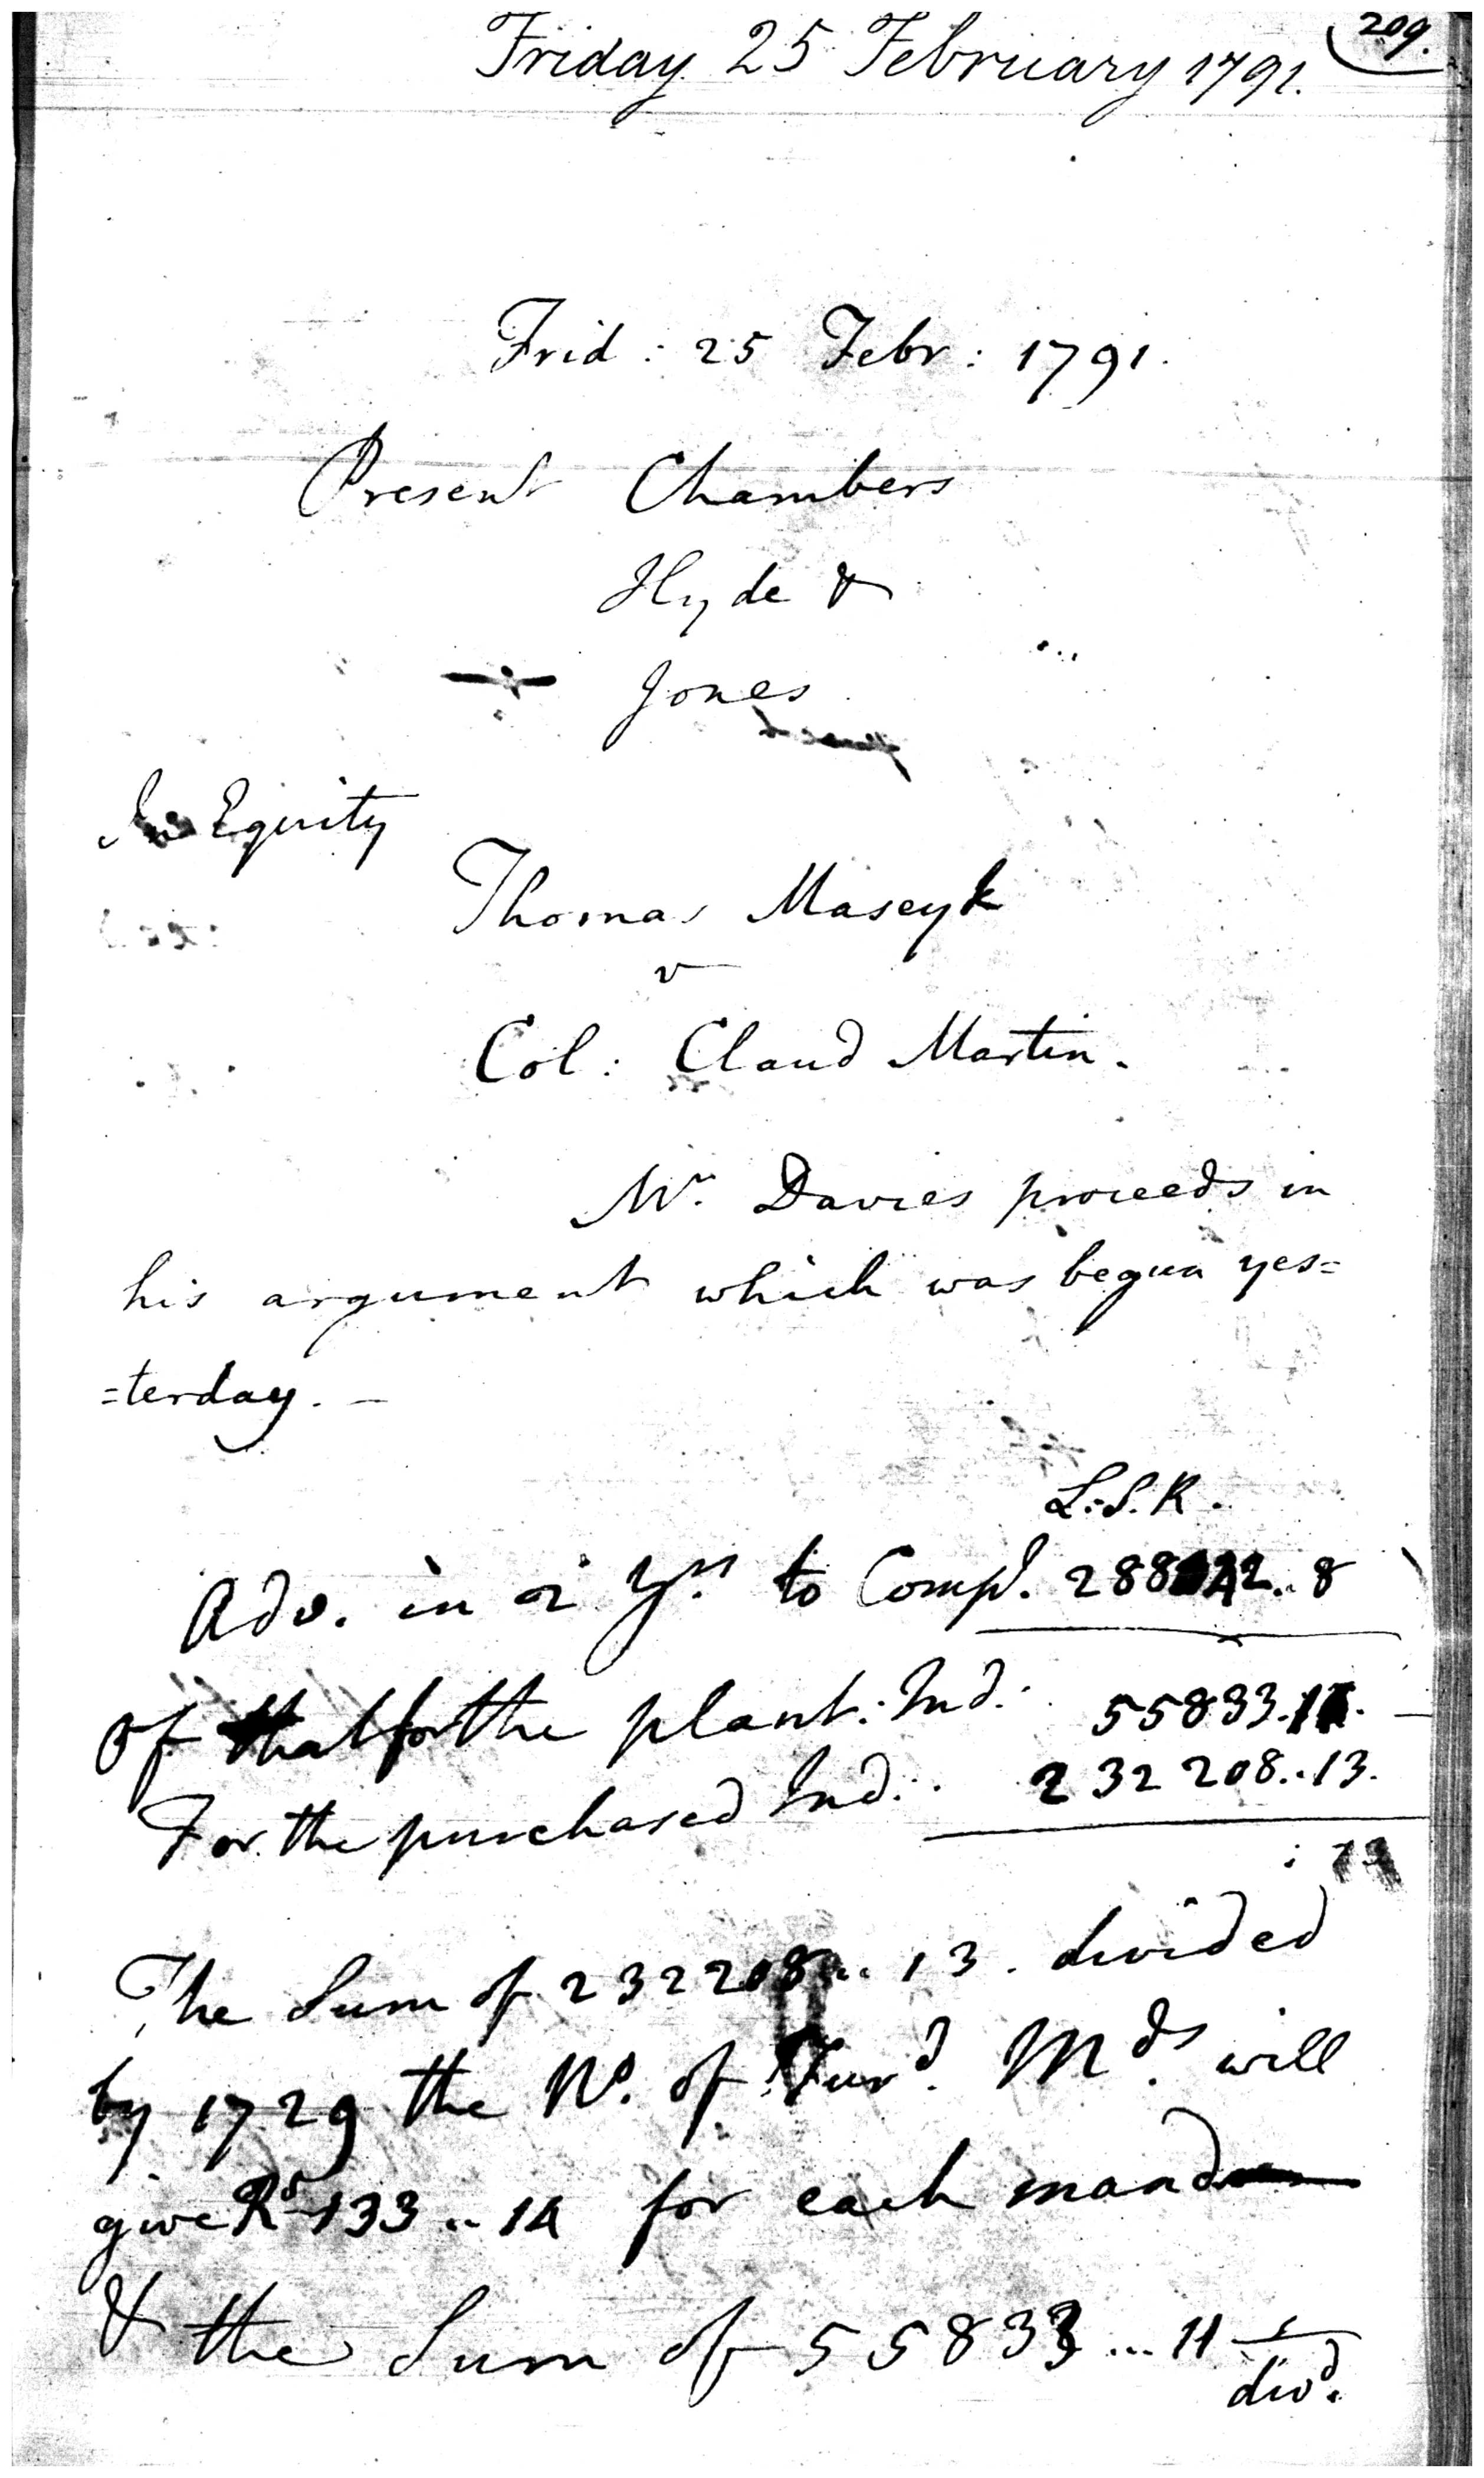 209.
Friday 25 February 1791.
Frid: 25 Febr: 1791.
Present Chambers
Hyde &
Jones
In Equity
Thomas Maseyk
v
Col: Claud Martin.
Mr. Davies proceeds in
his argument which was begun yes=
=terday. -
L.S.R.
Adv. in 2 Yrs to Compt. 288042..8
Of that for the plant: Ind:
55833.11.
For the purchased Ind: 232208..13.
The Sum of 232208.. 13. divided
by 1729 the No. of Furd. Mds. will
give Rs 133..14 for each maand
& the Sum of 55833...11
divd.